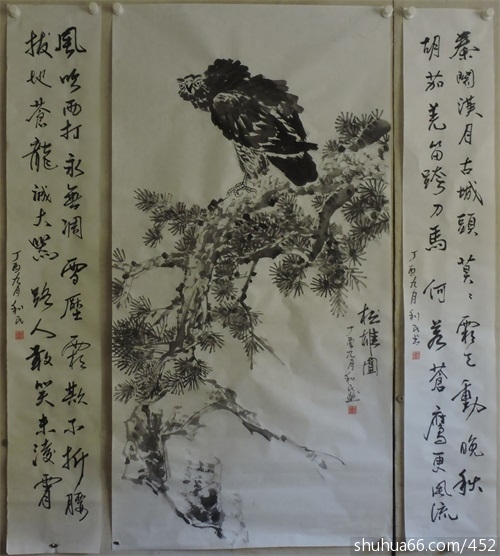 秦關漢月古城頭莫々霜天動晚秋
胡茄羌笛跨刀馬何若蒼鷹更風流
丁酉九月利民书
松雄圖
丁酉九月利民画
風吹雨打永無凋雪壓霜欺不折腰
拔地蒼龍誠大器路人敢笑未凌霄
丁酉九月利民
shuhua66.com/452